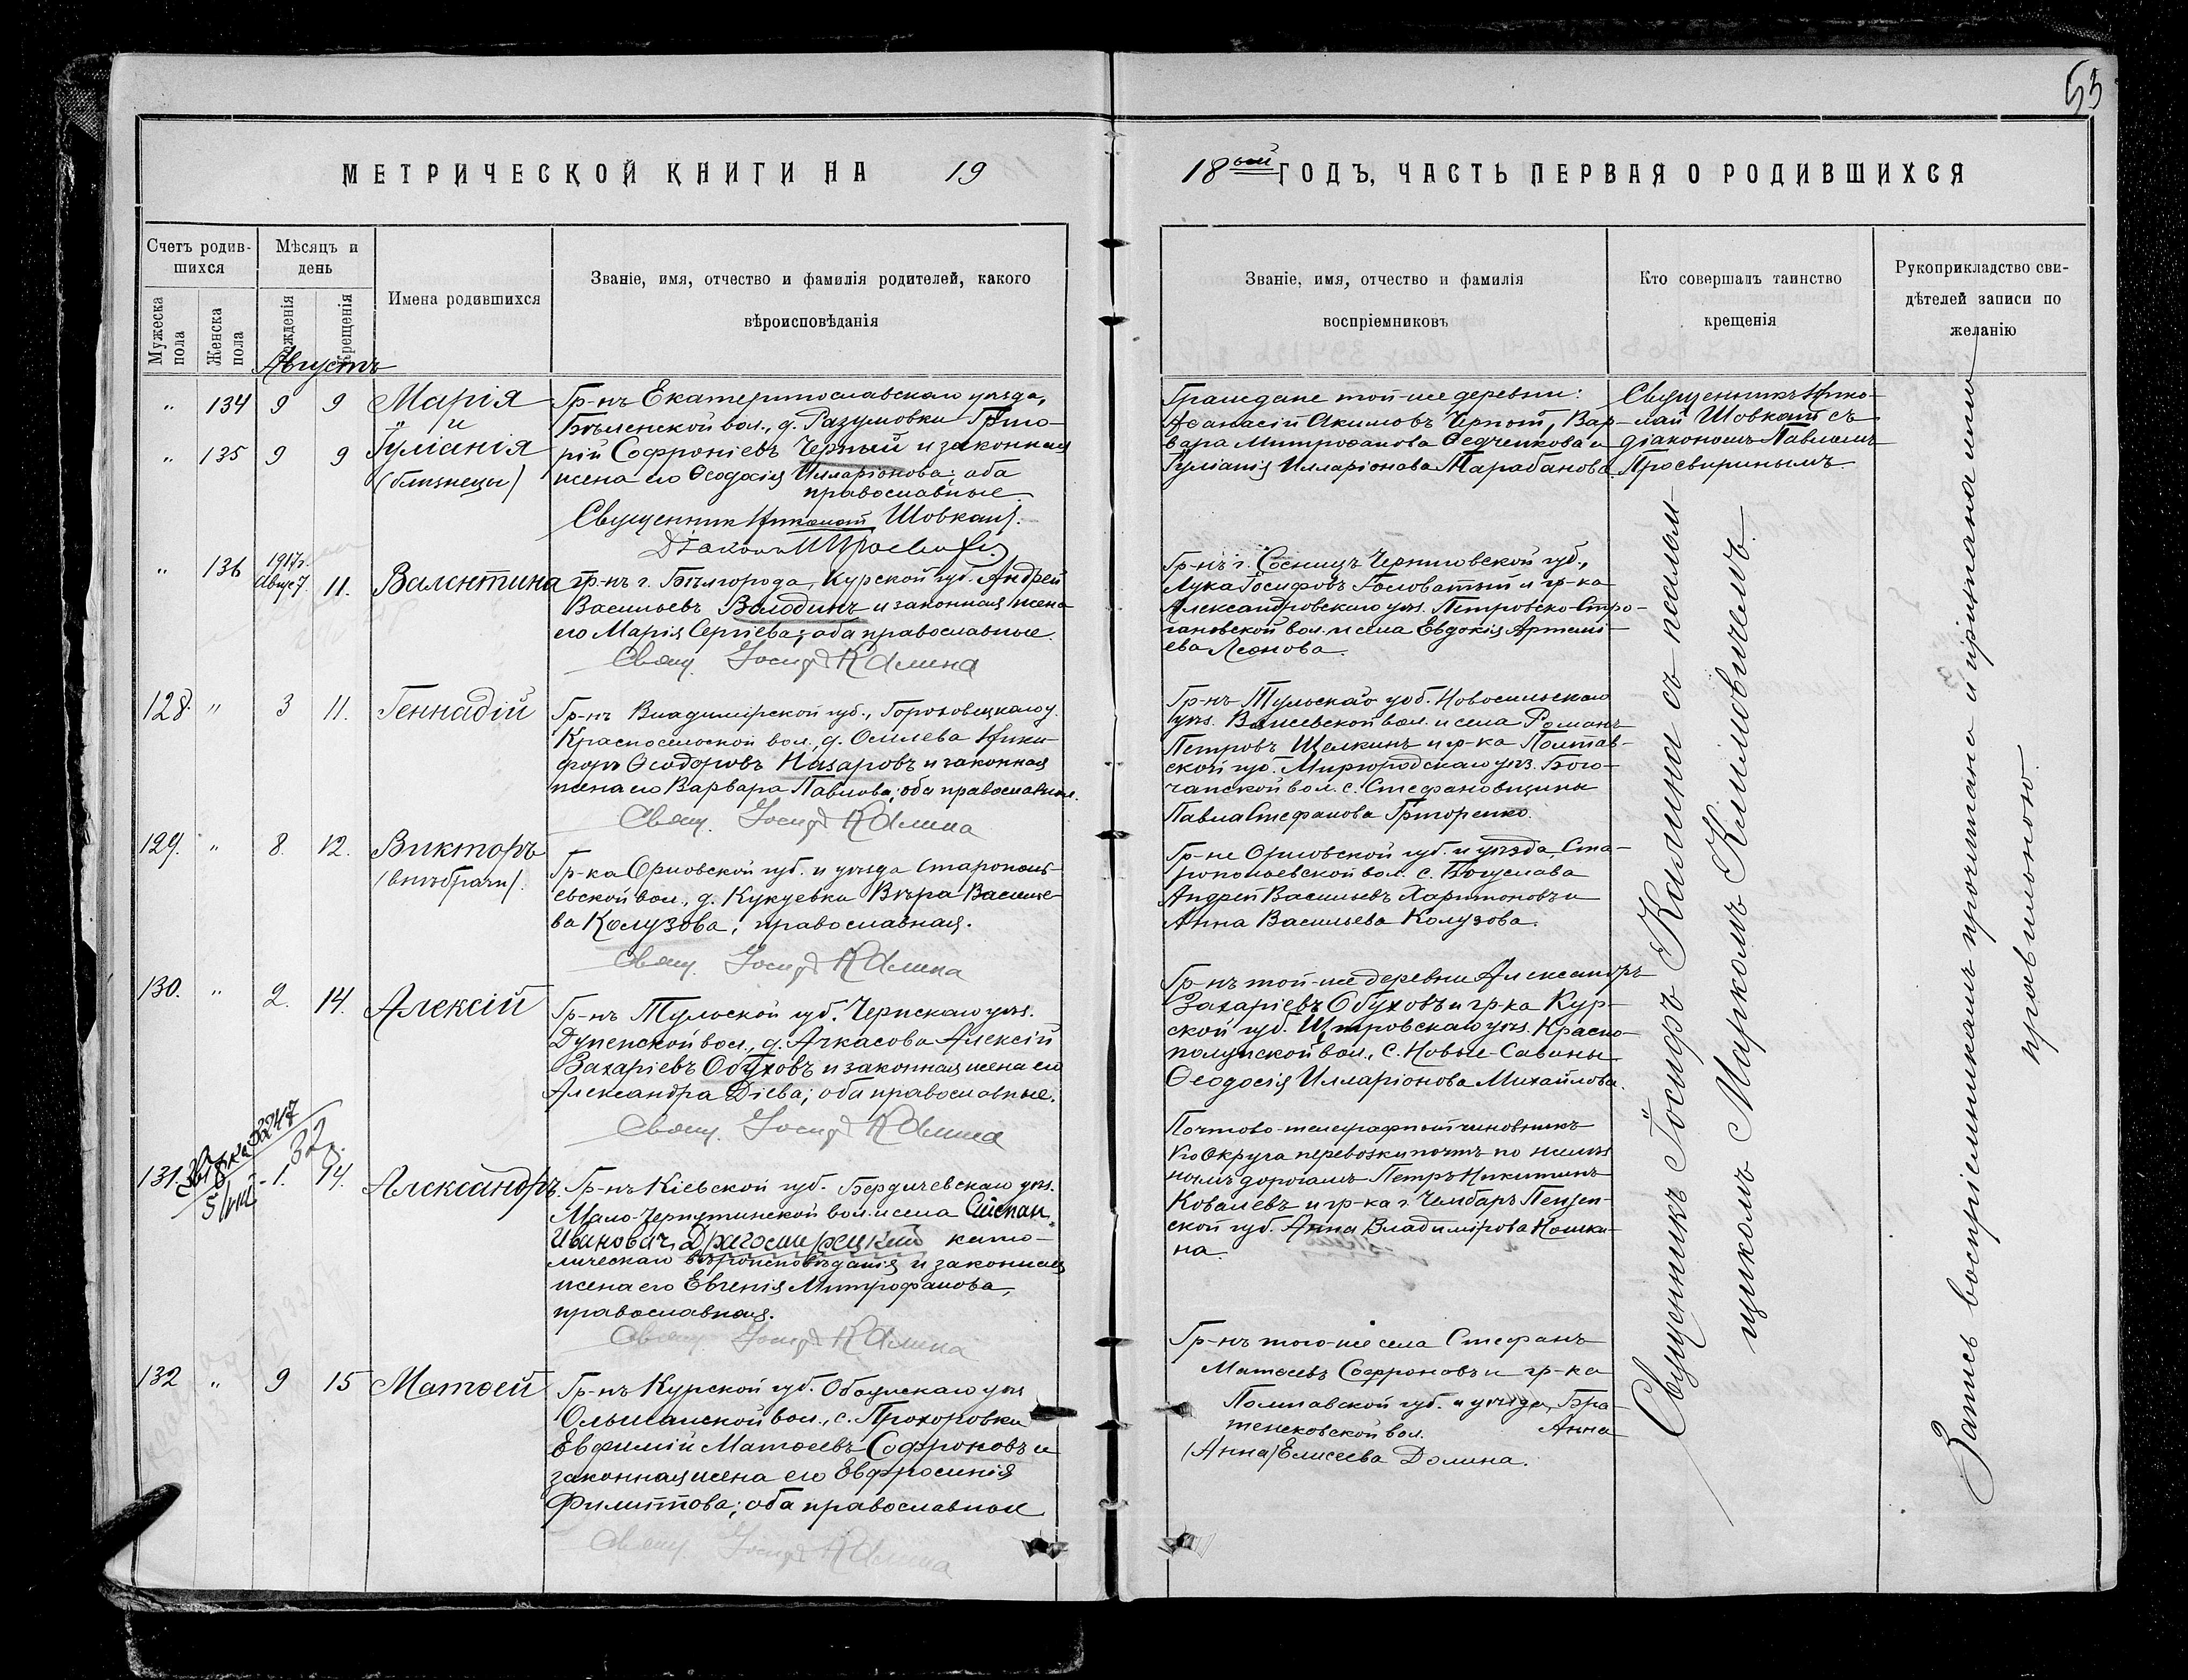 53
МЕТРИЧЕСКОЙ КНИГИ НА 19
18ый ГОДЪ, ЧАСТЬ ПЕРВАЯ О РОДИВШИХСЯ
Счетъ родив-
шихся
Мужеска
пола
Женска
пола
Мѣсяцъ и
день
Рожденія
Крещенія
Имена родившихся
Званіе, имя, отчество и фамилія родителей, какого
вѣроисповѣданія
Званіе, имя, отчество и фамилія
воспріемниковъ
Кто совершалъ таинство
крещенія
Рукоприкладство сви-
дѣтелей записи по
желанію
Августъ
" 134 9 9 Марія
и
" 135 9 9 Іуліанія
(близнецы)
Гр-нъ Екатеринославскаго уѣзда,
Бѣленской вол., д. Разумовки Григо-
рій Софроніевъ Черный и законная
жена его Ѳеодосія Илларіонова; оба
православные.
Священник Николай Шовкай.
Діаконъ
Граждане той-же деревни:
Аѳанасій Акимовъ Черный, Вар-
вара Митрофанова Ѳедченкова и
Іуліанія Илларіонова Тарабанова.
Священникъ Нико-
лай Шовкай съ
діакономъ Павломъ
Просвиринымъ.
" 136 1917г.
Авгус 7. 11. Валентина
гр-нъ г. Бѣлгорода, Курской губ. Андрей
Васильевъ Володинъ и законная жена
его Марія Сергіева; оба православные.
Свящ. Іосифъ Калина
Гр-нъ г. Сосницъ Черниговской губ.,
Лука Іосифовъ Головатый и гр-ка
Александровскаго уѣз. Петровско-Стро-
гановской вол. и села Евдокія Артемі-
ева Леонова.
128. " 3 11. Геннадій
Гр-нъ Владимірской губ., Гороховецкаго у.
Красносельской вол., д. Осилева Ники-
форъ Ѳеодоровъ Назаровъ и законная
жена его Варвара Павлова; оба православные.
Свящ. Іосифъ Калина
Гр-нъ Тульской губ. Новосильскаго
уѣз. вол. и села Романъ
Петровъ Щелкинъ и гр-ка Полтав-
ской губ. Миргородскаго уѣз. Бога-
чанской вол. с. Стефановщины
Павла Стефанова Григоренко.
129. " 8. 12. Викторъ
(внѣбрачн).
Гр-ка Орловской губ. и уѣзда Старополь-
евской вол., д. Кукуевки Вѣра Василье-
ва Колузова, православная.
Свящ. Іосифъ Калина
Гр-не Орловской губ. и уѣзда, Ста-
ропольевской вол. с. Богуслава
Андрей Васильевъ Харитоновъ и
Анна Васильева Колузова.
130. " 2. 14. Алексій
Гр-нъ Тульской губ. Чернскаго уѣз.
Дупенской вол., д. Ачкасова Алексій
Захаріевъ Обуховъ и законная жена его
Александра Діева; оба православные.
Свящ. Іосифъ Калина
Гр-нъ той-же деревни Александръ
Захаріевъ Обуховъ и гр-ка Кур-
ской губ. Щигровскаго уѣз. Красно-
полянской вол., с. Новые-Савины
Ѳеодосія Илларіонова Михайлова.
131. 1. 14. Александръ.
Гр-нъ Кіевской губ. Бердичевскаго уѣз.
Мало-Чернятинской вол. и села Степан
Иванович Драгомирецкий като-
лическаго вѣроисповѣданія и законная
жена его Евгенія Митрофанова,
православная.
Свящ. Іосифъ Калина
Почтово-телеграфный чиновникъ
Округа перевозки почтъ по желѣз
нымъ дорогамъ Петръ Никитинъ
Ковалевъ и гр-ка г. Чембаръ Пензен-
ской губ. Анна Владимірова Кошки-
на.
132 " 9 15 Матѳей
Гр-нъ Курской губ. Обоянскаго уѣз
Ольшанской вол., с. Прохоровки
Евфимій Матѳеевъ Софроновъ и
законная жена его Евфросинія
Филиппова; оба православные
Свящ. Іосифъ Калина
Гр-нъ того-же села Стефанъ
Матѳеевъ Софроновъ и гр-ка
Полтавской губ. и уѣзда, Бра-
тешковской вол. Анна
(Анна) Елисеева Долина.
Священникъ Іосифъ Калина съ псалом
щикомъ Маркомъ Климовичемъ.
Запись воспріемникамъ прочитана и признана ими
правильною.